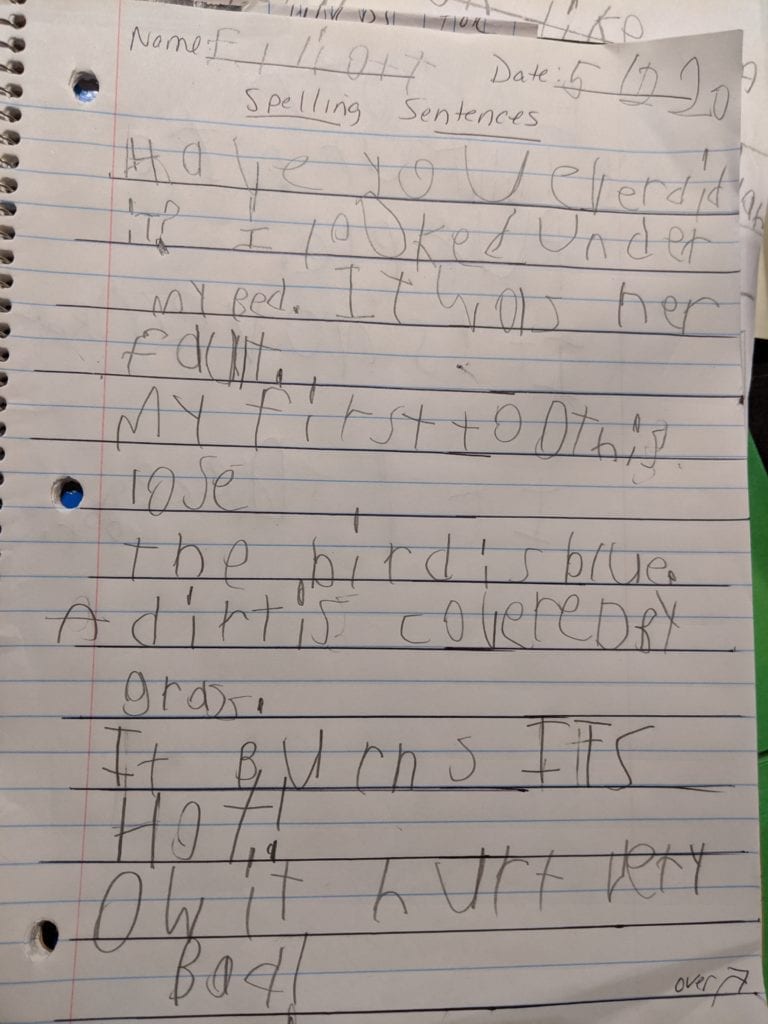 Name: Elliott Date: 5 20
Spelling Sentences
Have you ever did
it? I looked under
my Bed. It was her
Fault.
My First tooth is
lose
the bird is blue.
A dirt is covereD By
grass.
It Burns ITS
HOT!
Ow it hurt very
Bad!
over →